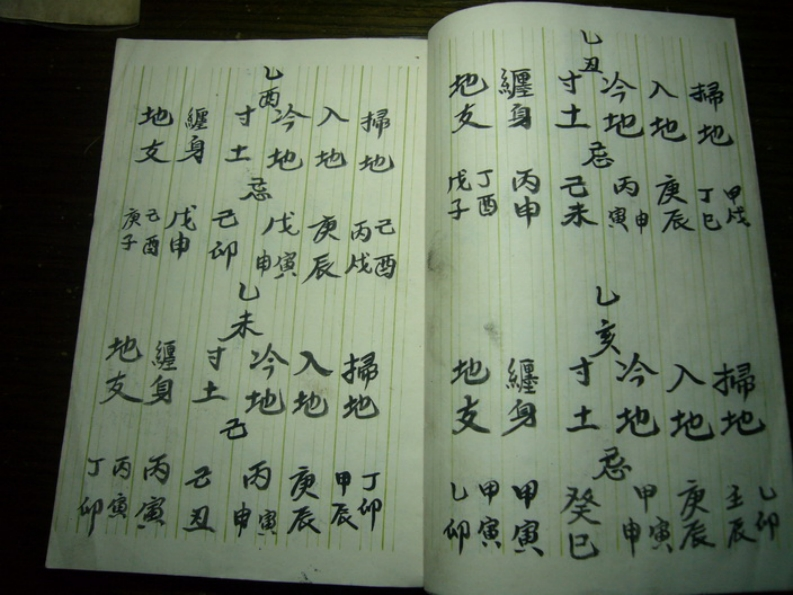 乙丑
掃地
入地
冷地
寸土
纏身
地支
忌
甲戌
丁巳
庚辰
丙寅申
己未
丙申
丁酉
戊子
乙亥
掃地
入地
冷地
寸土
纏身
地支
忌
乙卯
壬辰
庚辰
甲寅申
癸巳
甲寅
甲寅
乙卯
乙酉
掃地
入地
冷地
寸土
纏身
地支
忌
己酉
丙戌
庚辰
戊寅申
己卯
戊申
己酉
庚子
乙未
掃地
入地
冷地
寸土
纏身
地支
己
丁卯
甲辰
庚辰
丙寅申
己丑
丙寅
丙寅
丁卯